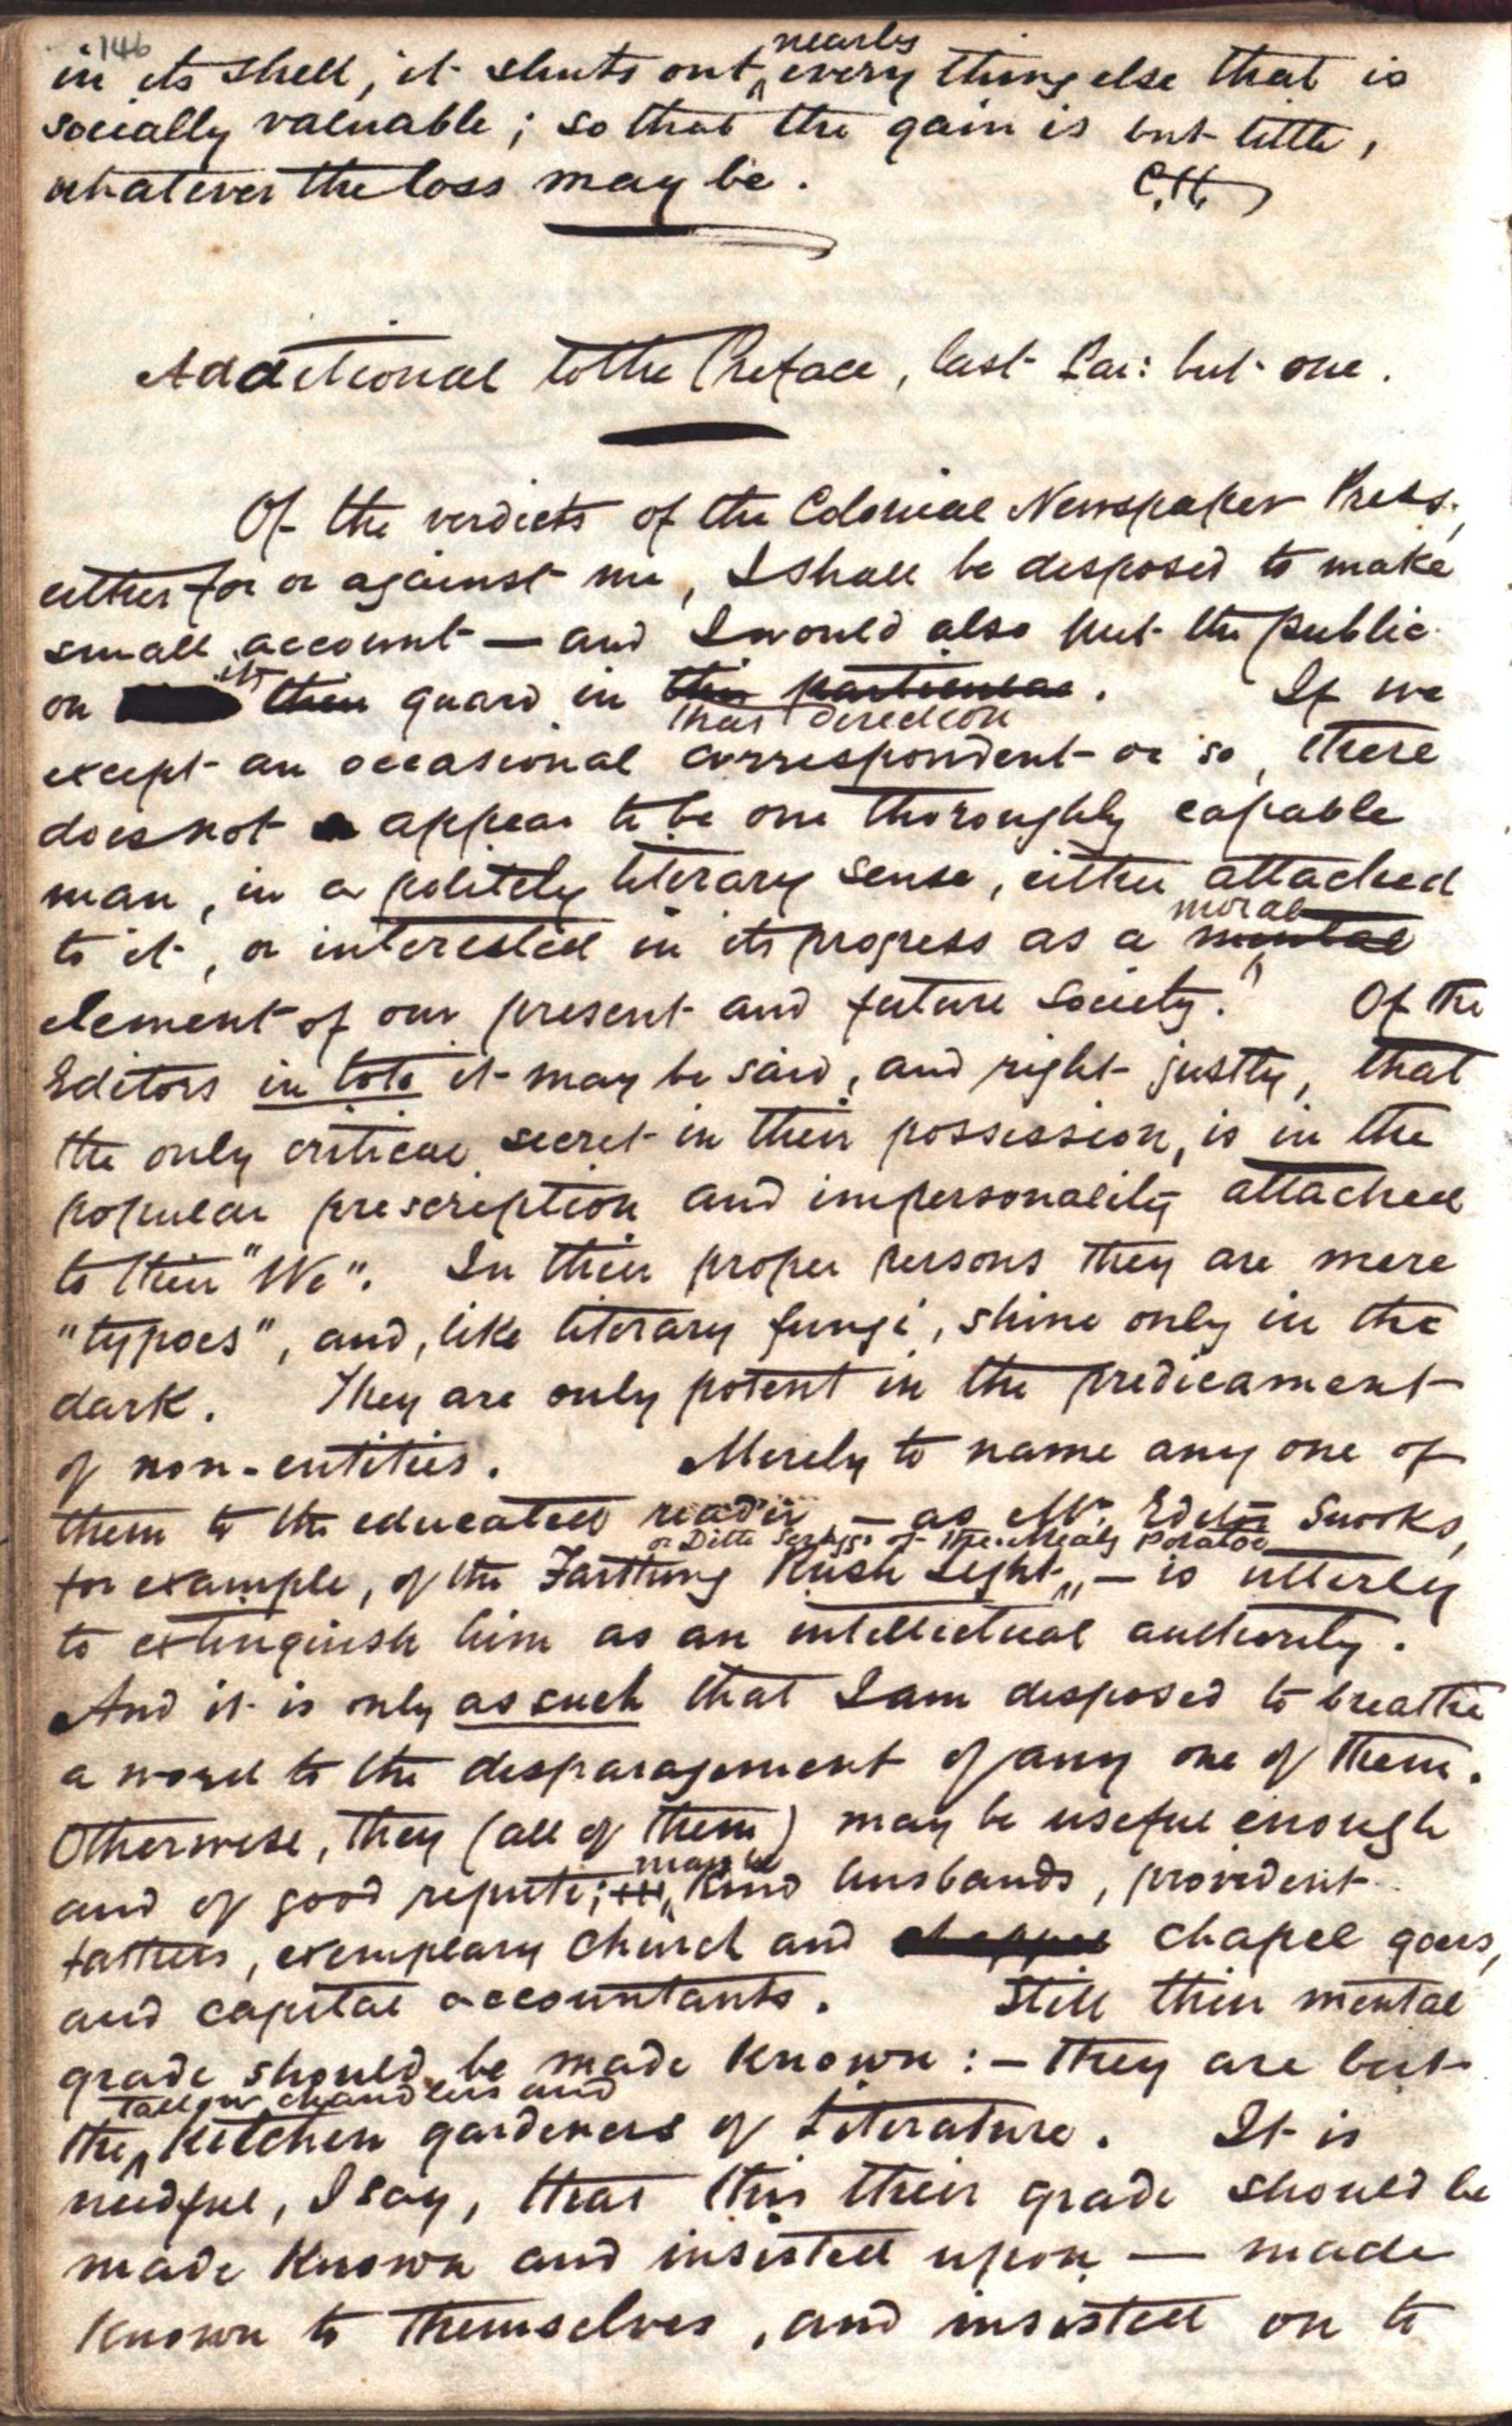 146
in its shell, it shuts out nearly every thing else that is
socially valuable; so that the gain is but little,
whatever the loss may be. C.H.
Additional to the Preface, last Par: but one.
Of the verdicts of the Colonial Newspaper Press,
either for or against me, I shall be disposed to make
small account — and I would also put the public
on its their guard in this particular.  If we
that direction
except an occasional correspondent or so, there
does not appear to be one thoroughly capable
man, in a politely literary sense, either attached
moral
to it, or interested in its progress as a mental
element of our present and future society. Of the
Editors in toto it may be said, and right justly, that
the only critical secret in their possession, is in the
popular prescription and impersonality attached
to their "We". In their proper persons they are mere
"typoes", and, like literary fungi, shine only in the
dark. They are only potent in the predicament
of non-entities. Merely to name any one of
them to the educated reader, — as Mr. Editor Snooks,
or Ditto Scraggs of the Mealy Potatoe
for example, of the Farthing Rush Light, — is utterly
to extinguish him as an intellectual authority.
And it is only as such that I am disposed to breathe
a word to the disparagement of any one of them.
Otherwise, they (all of them) may be useful enough
may be
and of good repute; kind husbands, provident
fathers, exemplary church and chappel chapel goers,
and capital accountants. Still their mental
grade should be made known: — they are but
tallow chandlers and
the kitchen gardeners of Literature. It is
needful, I say, that this their grade should be
made known and insisted upon — made
known to themselves, and insisted on to